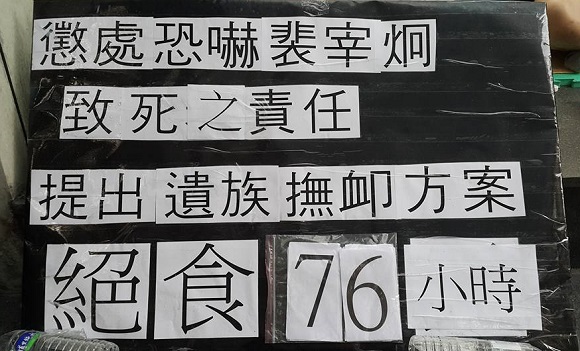 懲處恐嚇裴宰炯
致死之責任
提出遺族撫卹方案
絕食76小時